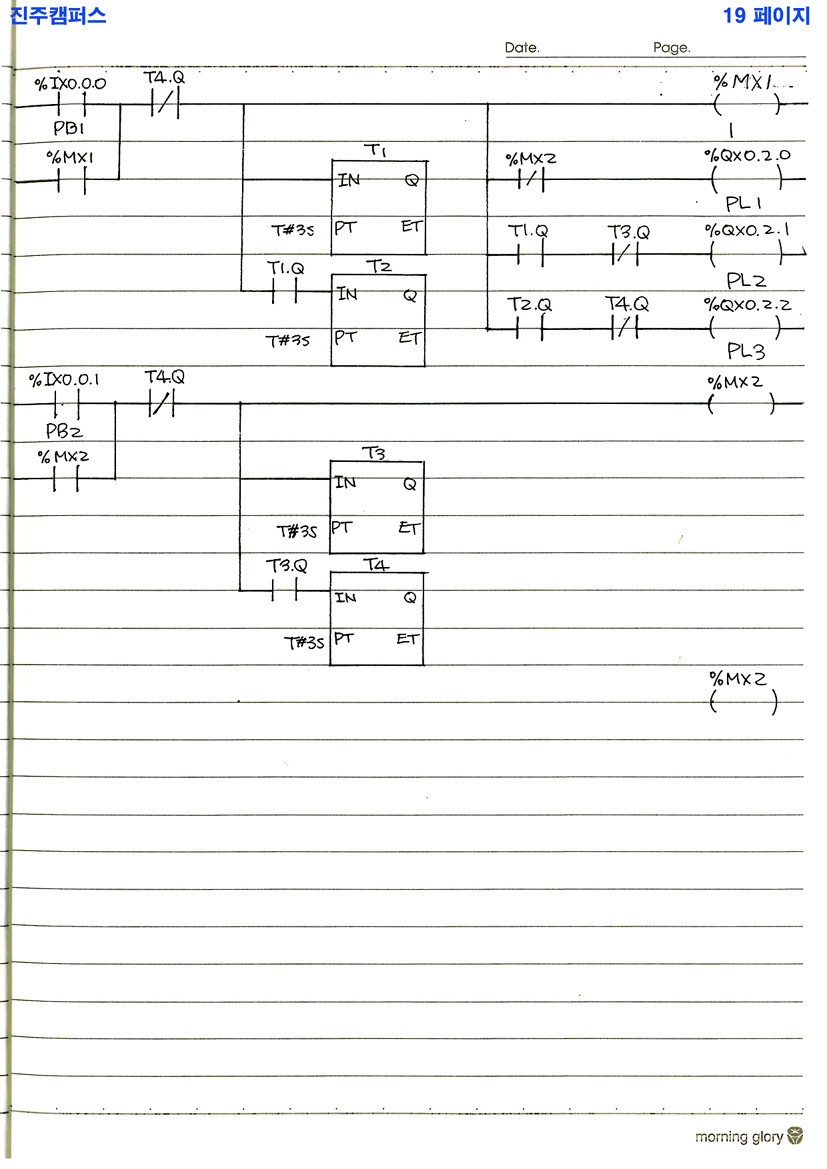 진주캠퍼스 19 페이지
Date. Page.
%IX0.0.0 T4.Q %MX1
PB1 1
%MX1 T1 %MX2 %QX0.2.0
IN Q
PL1
T#3S PT ET T1.Q T3.Q %QX0.2.1
T1.Q T2 PL2
IN Q T2.Q T4.Q %QX0.2.2
T#3S PT ET
PL3
%IX0.0.1 T4.Q %MX2
PB2
%MX2 T3
IN Q
T#3S PT ET
T3.Q T4
IN Q
T#3S PT ET
%MX2
morning glory